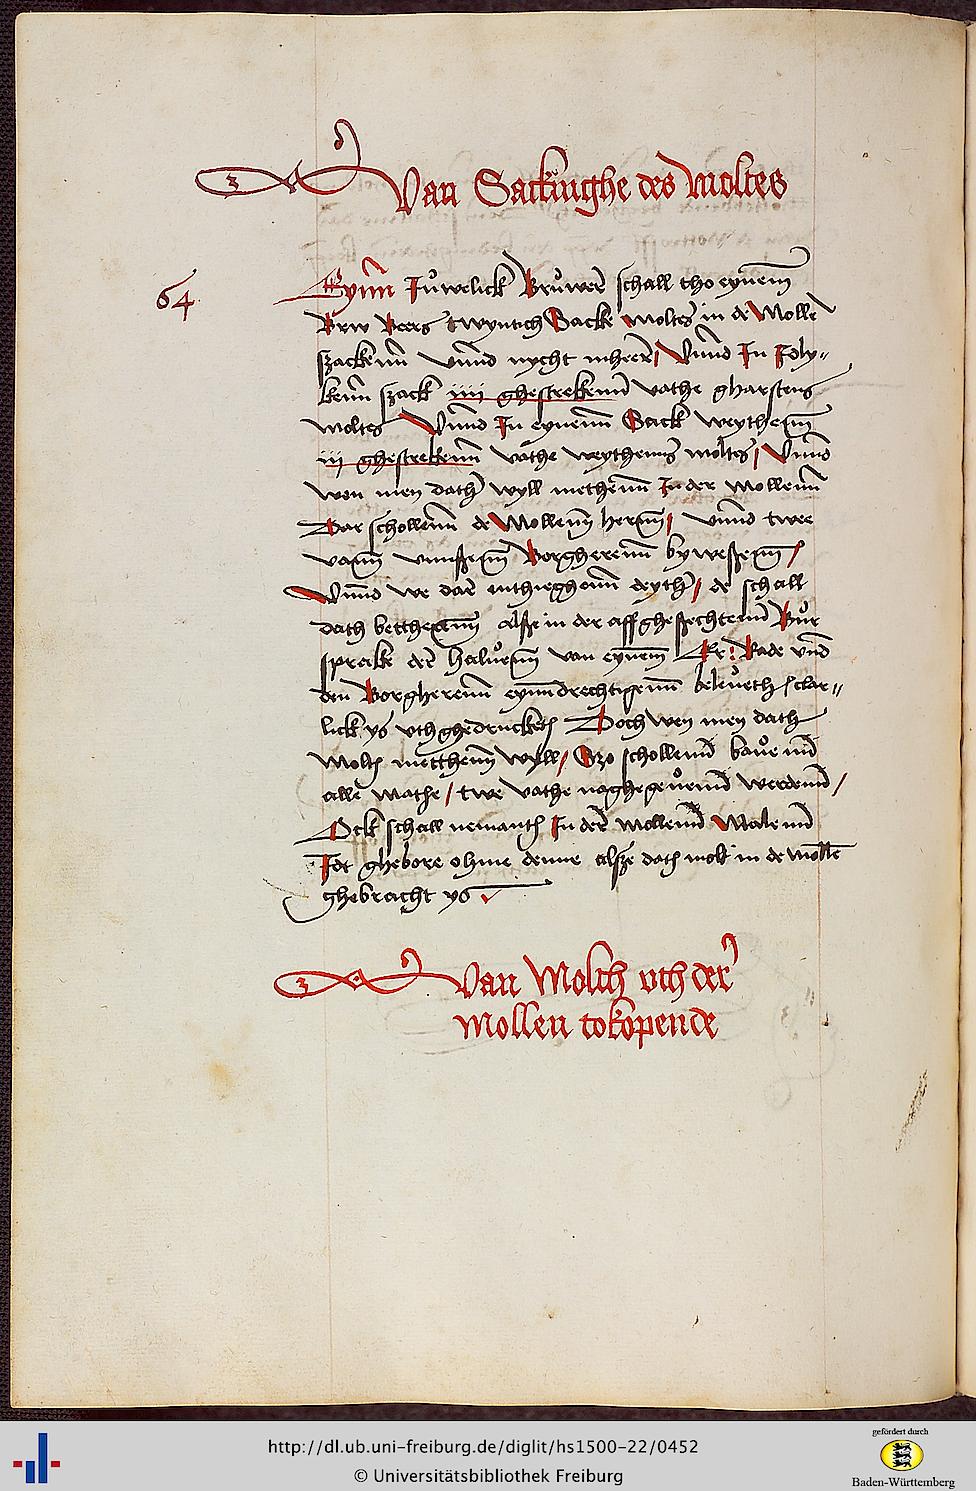 Van Sackinghe des Moltes
64
Eynn Iuͦwelick Bruͦwer schall tho eynem
Brw Beers twyntich Sacke moltes in de Mollen
szackenn vnnd nycht mheer / Vnnd In Isly-
kenn szack iiii ghestrekenn vathe gharstens
moltes Vnnd In eynenn Sack weythenn
iii ghestrekenn vathe weythenns moltes / Vnnd
wen men dath wyll methenn In der mollenn
Dar schollenn de Mollenn hernn / vnnd twee
vann vnnszenn Borgherenn byweszenn /
Vnnd we dar enthieghenn deyth / de schall
dath betthernn alsze in der affgheszechtenn Buͦr
sprake der haluenn van eynem Er: Rade vnd
den Borgherenn eynndrechtigenn beleuͦeth clar-
lick ys vthghedrucketh Doch wen men dath
Molth metthenn wyll / Szo schollenn bauͦenn
alle mathe / twe vathe naghegeuͦenn werdenn /
Ock schall nemanth In der mollenn Malenn
Idt ghebore ohme denne alsze dath molt in de mollen
ghebracht ys
Van Molth vth der
Mollen tokopende
http://dl.ub.uni-freiburg.de/diglit/hs1500-22/0452
© Universitätsbibliothek Freiburg
gefördert durch
Baden-Württemberg